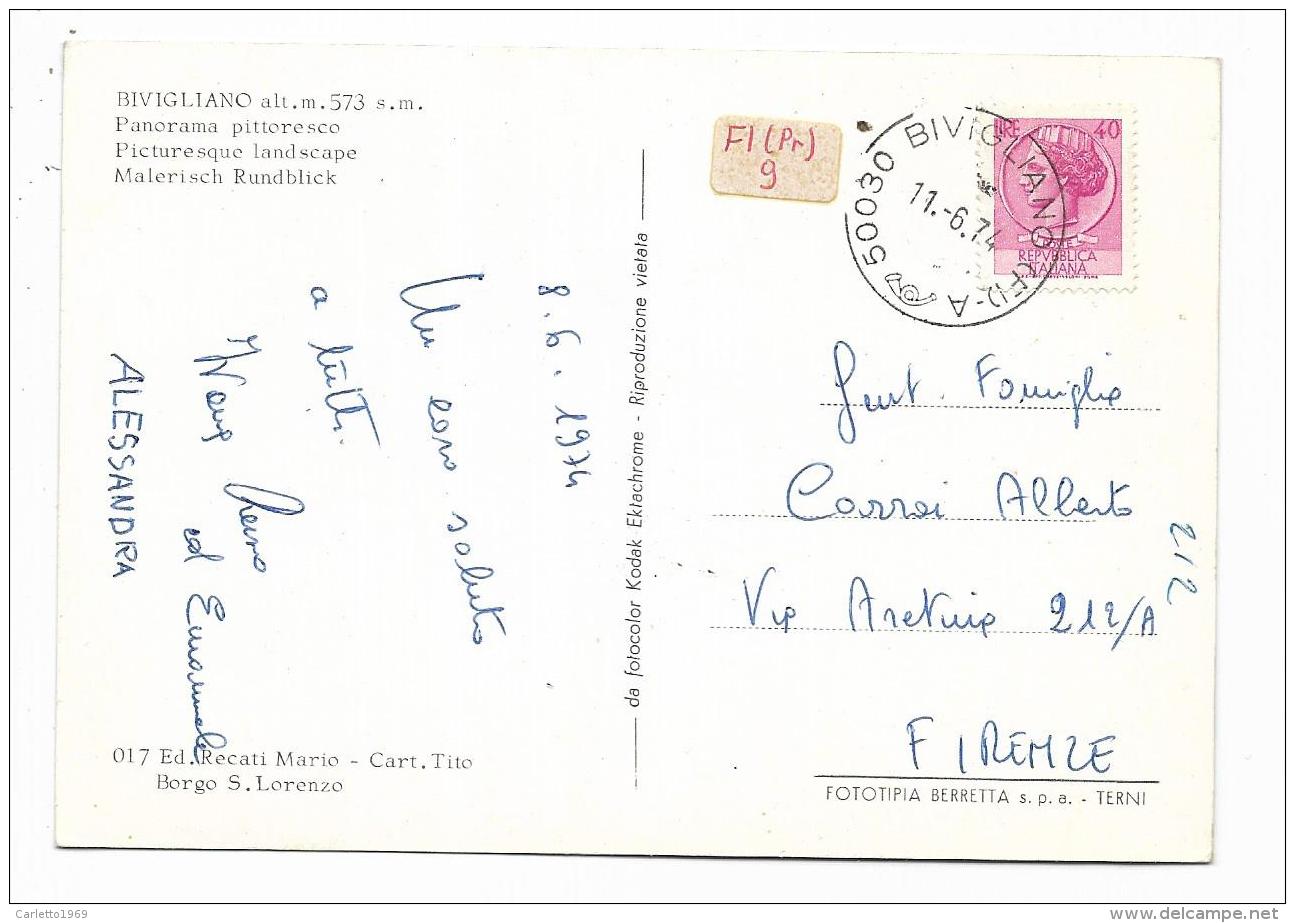 BIVIGLIANO alt.m.573 s.m.
Panorama pittoresco
Picturesque landscape
Malerisch Rundblick
8.6.1974
Un caro saluto
a tutti.
ed Emanuele
ALESSANDRA
017 Ed. Recati Mario - Cart. Tito
Borgo S. Lorenzo
da fotocolor Kodak Ektachrome - Riproduzione vietata
FI (Pr)
9
50030 BIVIGLIANO (FI)-A
11.-6.74
LIRE 40
REPVBBLICA
ITALIANA
Gent. Famiglia
Carrai Alberto
Via Aretina 212/A
212
FIRENZE
FOTOTIPIA BERRETTA s.p.a. - TERNI
Carletto1969
delcampe.net